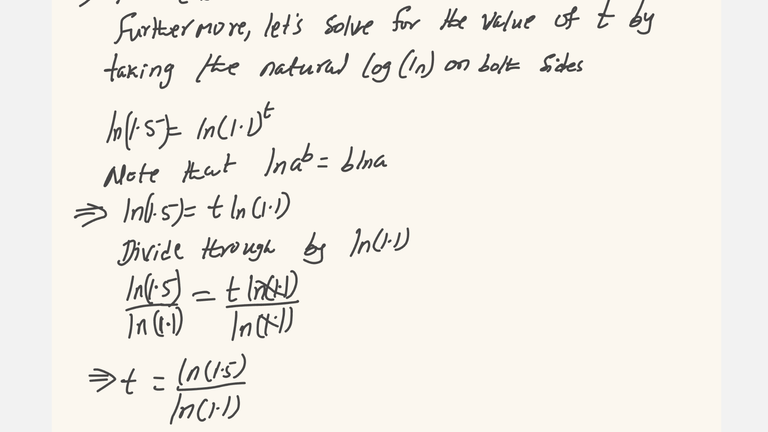 Furthermore, let's solve for the value of t by
taking the natural log (ln) on both sides
ln(1.5) = ln(1.1)^t
Note that ln a^b = b ln a
⇒ ln(1.5) = t ln(1.1)
Divide through by ln(1.1)
ln(1.5)/ln(1.1) = t ln(1.1)/ln(1.1)
⇒ t = ln(1.5)/ln(1.1)